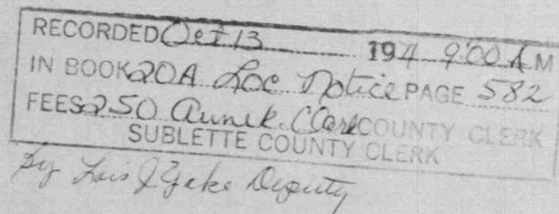 RECORDED Oct 13 194 9:00 A M
IN BOOK 20A Loc Notice PAGE 582
FEES 2 50 Ann K. Clark COUNTY CLERK
SUBLETTE COUNTY CLERK
By Lois J Deputy